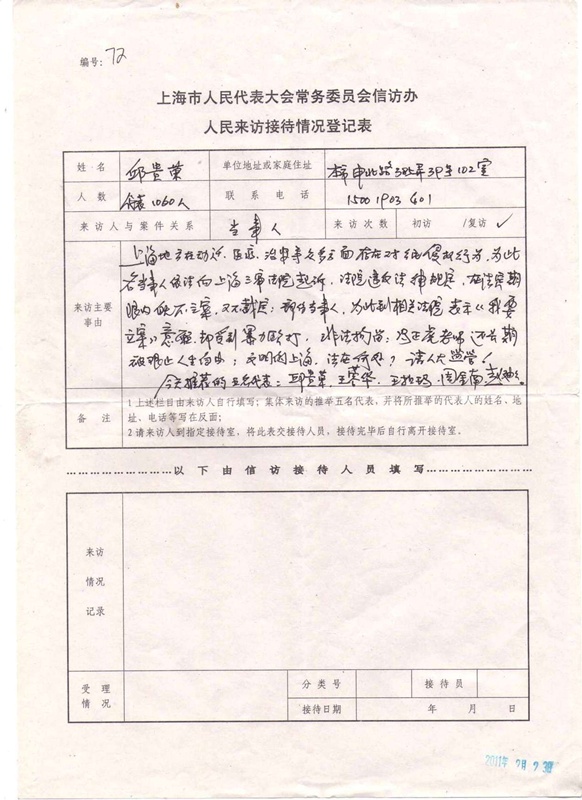 编号：72
上海市人民代表大会常务委员会信访办
人民来访接待情况登记表
姓名 邱贵荣 单位地址或家庭住址 本市申北路 弄39号102室
人数 60人 联系电话 1500 1903 401
来访人与案件关系 当事人 来访次数 初访 /复访 ✓
来访主要事由
上海地方在动迁、医疗、治安等众多方面存在对 侵权行为，为此
名当事人依法向上海三 法院起诉，法院违反法律规定，在法定期
限内既不立案，又不裁定；部分当事人，为此到相关法院表示《我要
立案》意愿，却受到暴力殴打，非法拘留；冯正虎老师还长期
被限止人生自由；文明的上海，法在何处？请人大监督！
今天推荐的五名代表：邱贵荣、王蓉华、 、周金南、
备注
1 上述栏目由来访人自行填写；集体来访的推举五名代表，并将所推举的代表人的姓名、地
址、电话等写在反面；
2 请来访人到指定接待室，将此表交接待人员，接待完毕后自行离开接待室。
………………………以下由信访接待人员填写………………………
来访
情况
记录
受理情况 分类号 接待员
接待日期 年 月 日
2011年